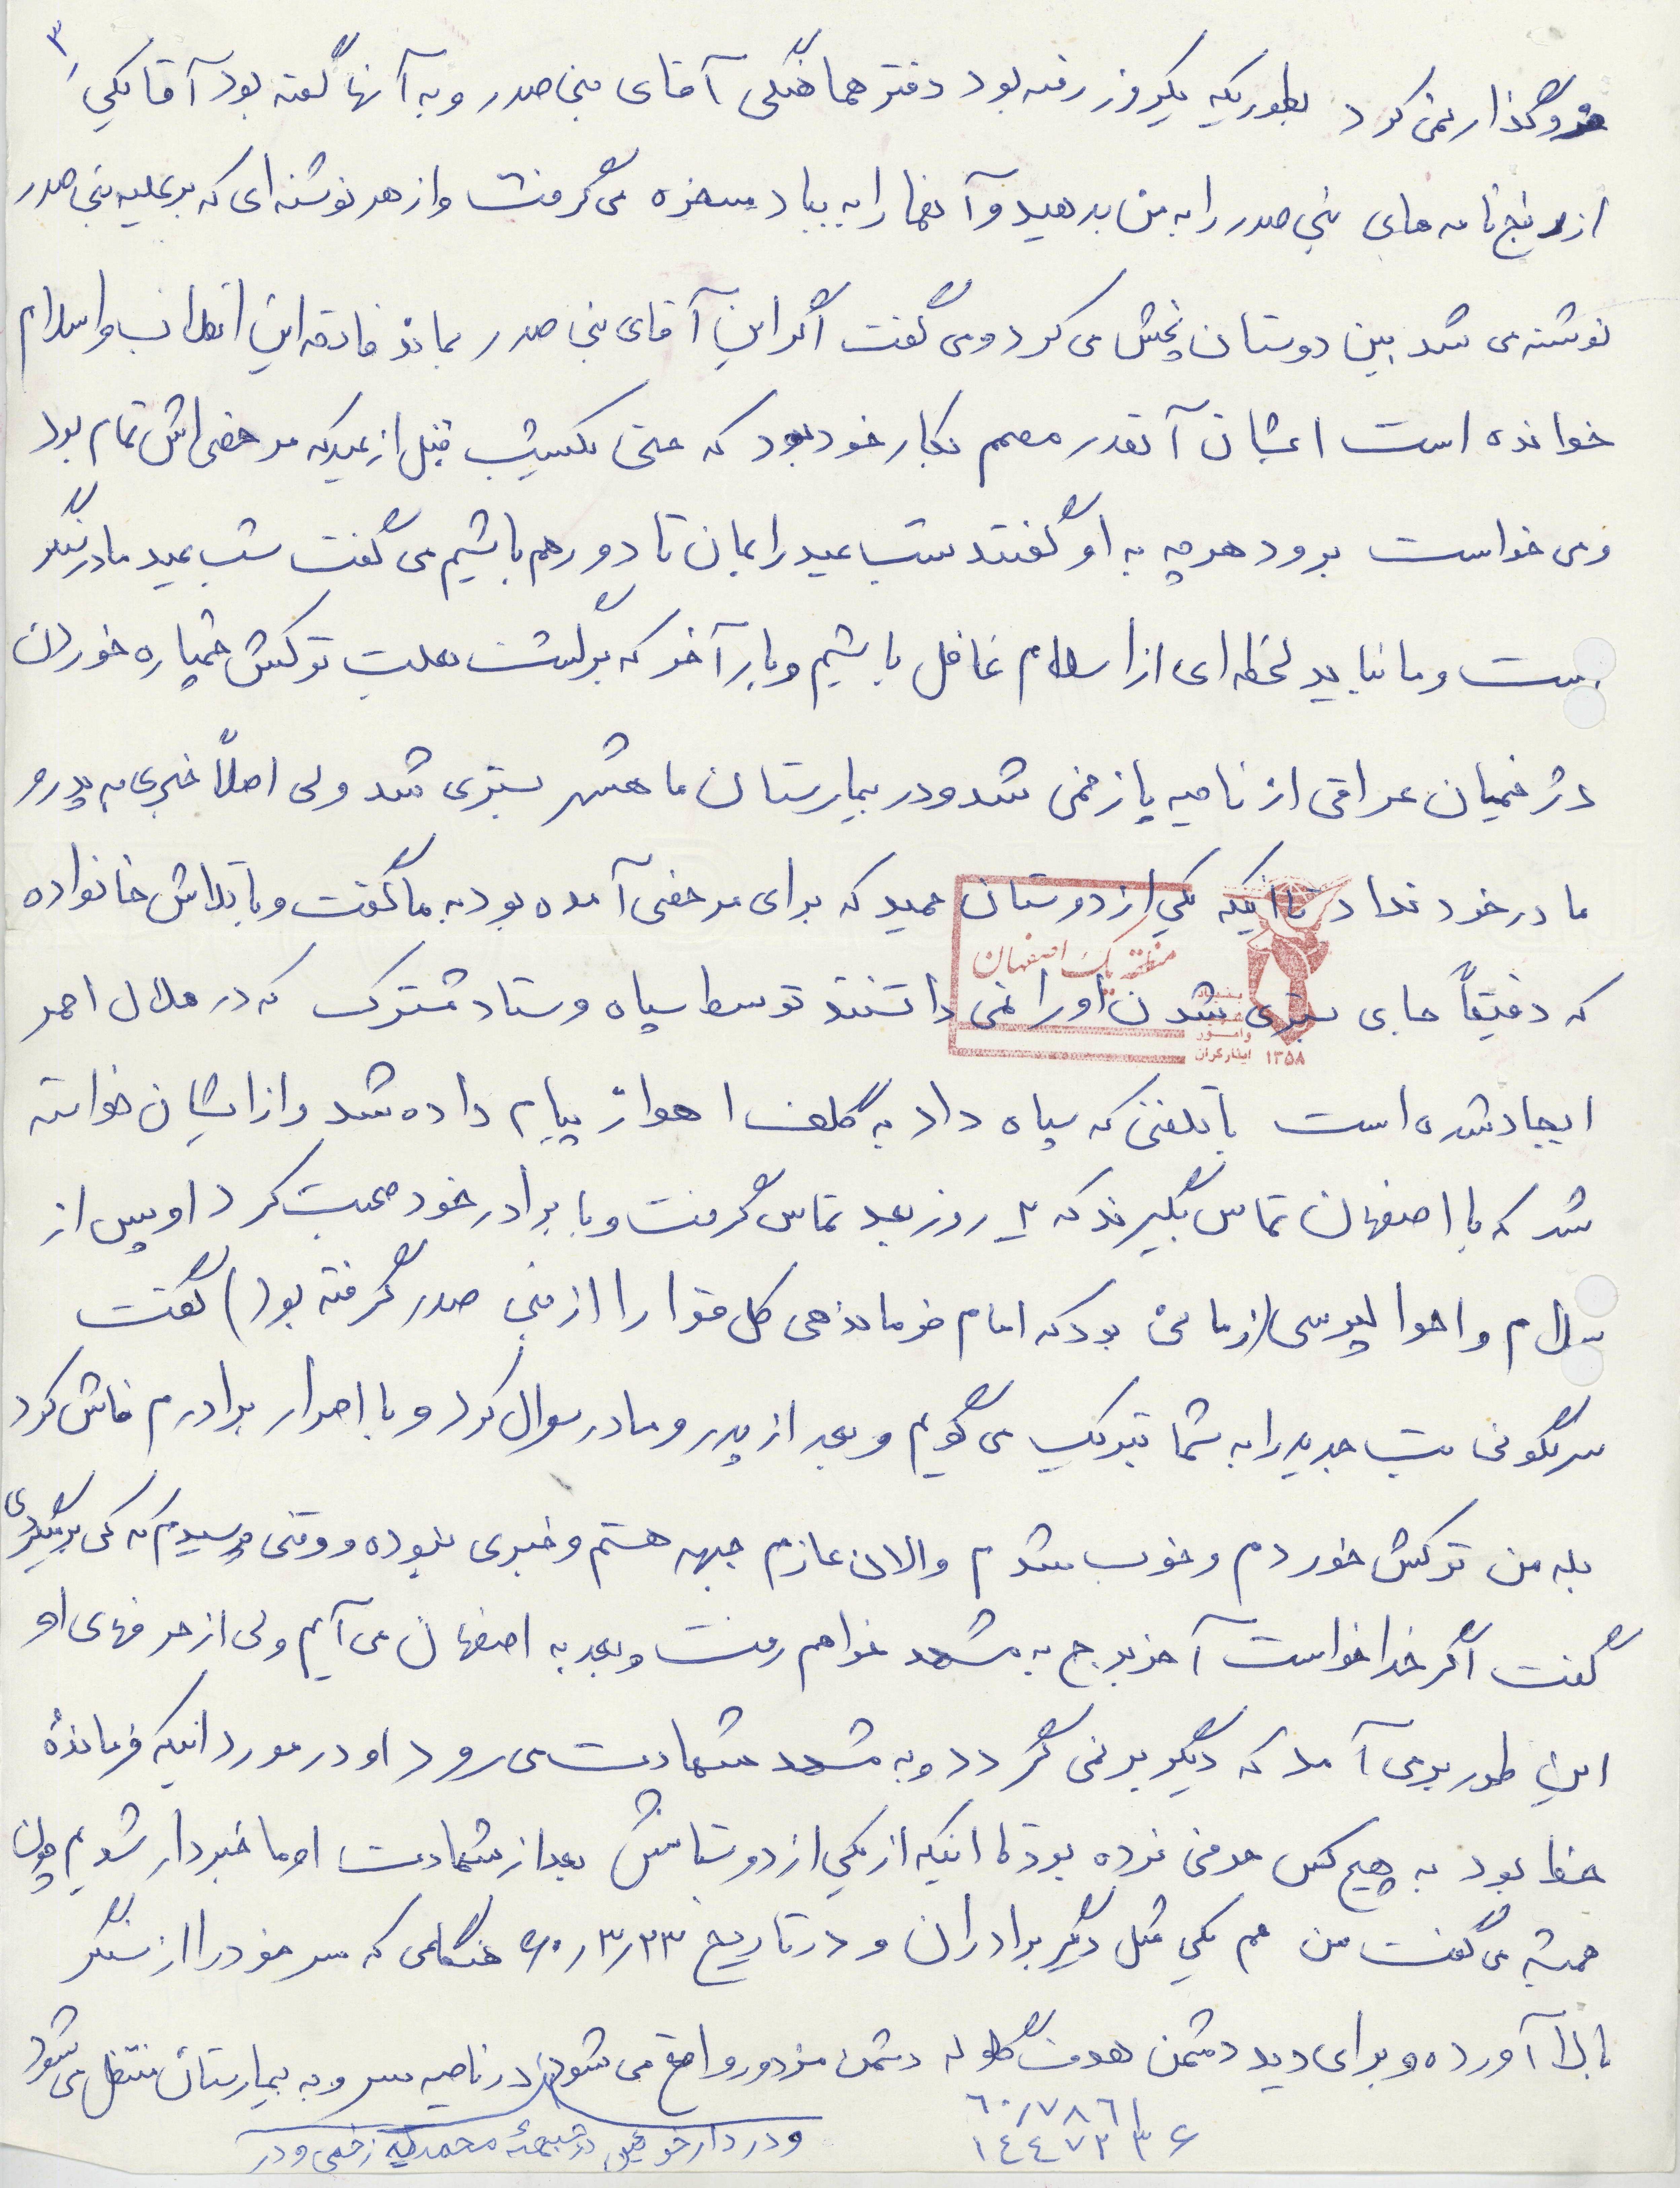 ۳
فروگذار نمی کرد بطوریکه یکروز رفته بود دفتر هماهنگی آقای بنی صدر و به آنها گفته بود آقا یکی
از رنج نامه های بنی صدر را به من بدهید و آنها را به باد مسخره می گرفت و از هر نوشته ای که بر علیه بنی صدر
نوشته می شد بین دوستان پخش می کرد و می گفت اگر این آقای بنی صدر بماند فاتحه این انقلاب و اسلام
خوانده است ایشان آنقدر مصمم بکار خود بود که حتی یکشب قبل از عید که مرخصی اش تمام بود
و می خواست برود هر چه به او گفتند شب عید را بمان تا دور هم باشیم می گفت شب عید ما در سنگر
است و ما نباید لحظه ای از اسلام غافل باشیم و بار آخر که برگشت بعلت ترکش خمپاره خوردن
دژخمیان عراقی از ناحیه پا زخمی شد و در بیمارستان ماهشهر بستری شد ولی اصلاً خبری به پدر و
مادر خود نداد تا اینکه یکی از دوستان حمید که برای مرخصی آمده بود به ما گفت و با تلاش خانواده
که دقیقاً جای بستری شدن او را نمی دانستند توسط سپاه و ستاد مشترک که در هلال احمر
ایجاد شده است با تلفنی که سپاه داد به گلف اهواز پیام داده شد و از ایشان خواسته
شد که با اصفهان تماس بگیرند که روز بعد تماس گرفت و با برادر خود صحبت کرد او پس از
سلام و احوالپرسی (زمانی بود که امام فرماندهی کل قوا را از بنی صدر گرفته بود) گفت
سرنگونی بت جدید را به شما تبریک می گویم و بعد از پدر و مادر سوال کرد و با اصرار برادرم فاش کرد
بله من ترکش خوردم و خوب شدم و الان عازم جبهه هستم و خبری نبوده و وقتی پرسیدم که کی برمیگردی
گفت اگر خدا خواست آخر برج به مشهد خواهم رفت و بعد به اصفهان می آیم ولی از حرفهای او
این طور برمی آمد که دیگر برنمی گردد و به مشهد شهادت می رود او در مورد اینکه فرماندهٔ
خط بود به هیچ کس حرفی نزده بود تا اینکه از یکی از دوستانش بعد از شهادت او ما خبردار شدیم چون
همیشه می گفت من هم یکی مثل دیگر برادران و در تاریخ ۶۰/۳/۲۳ هنگامی که سر خود را از سنگر
بالا آورده و برای دید دشمن هدف گلوله دشمن مزدور واقع می شود در ناحیه سر و به بیمارستان منتقل می شود
و در دارخوئین در جبههٔ محمدیه زخمی و در
۶۰/۷۸۶۱
۱۴۴۷۲۳۶
منطقه یک اصفهان
بنیاد
وامور
ایثارگران ۱۳۵۸